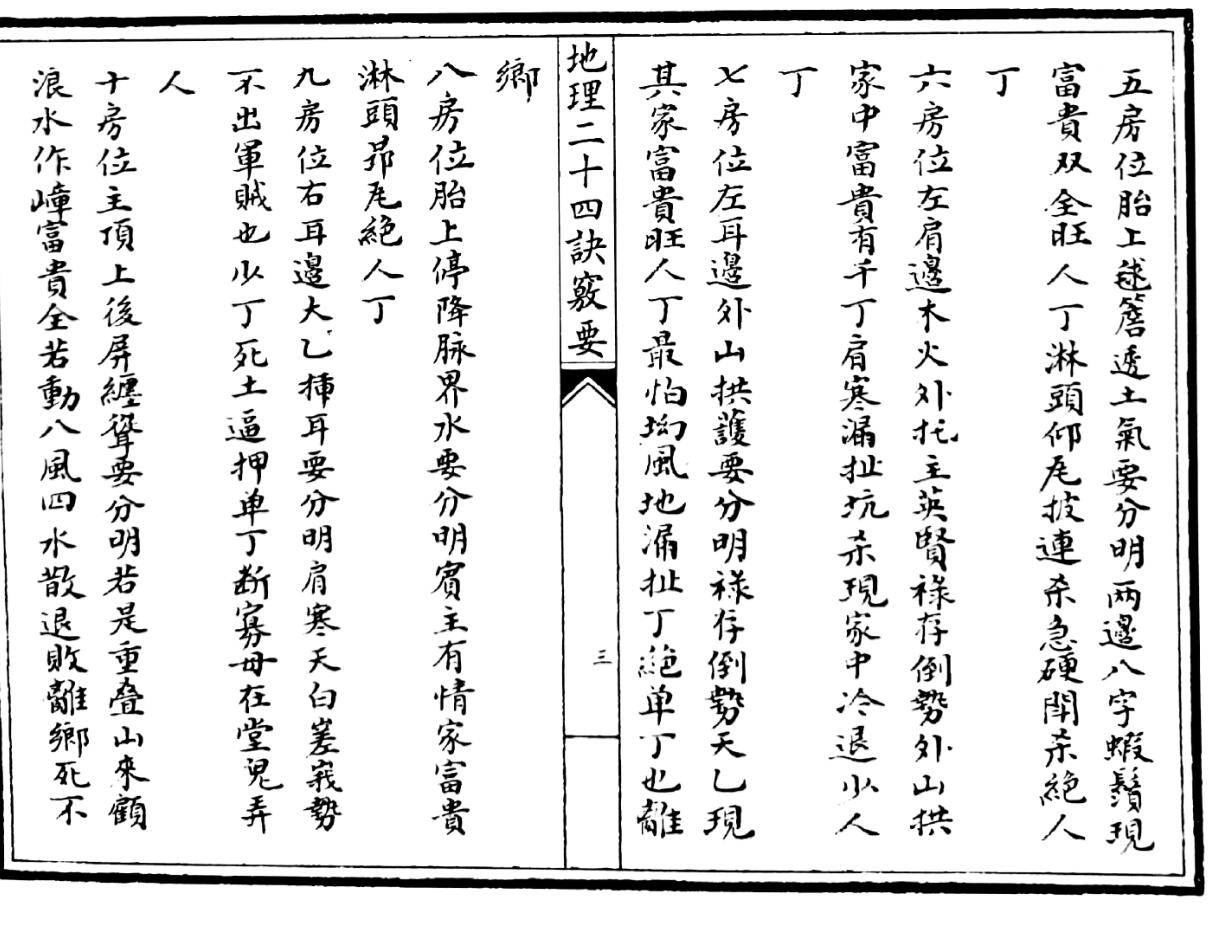 五房位胎上毬簷透土氣要分明兩邊八字蝦鬚現
富貴双全旺人丁淋頭仰尾披連杀急硬鬪杀絕人
丁
六房位左肩邊木火外托主英賢祿存倒勢外山拱
家中富貴有千丁肩寒漏扯坑杀現家中冷退少人
丁
七房位左耳邊外山拱護要分明祿存倒勢天乙現
其家富貴旺人丁最怕坳風地漏扯丁絕单丁也離
地理二十四訣竅要
三
鄉
八房位胎上停降脉界水要分明賓主有情家富貴
淋頭昂尾絕人丁
九房位右耳邊大乙揷耳要分明肩寒天白嵳峩勢
不出軍賊也少丁死土逼押单丁断寡母在堂兒弄
人
十房位主頂上後屏纏聳要分明若是重叠山來顧
浪水作嶂富貴全若動八風四水散退敗離鄉死不